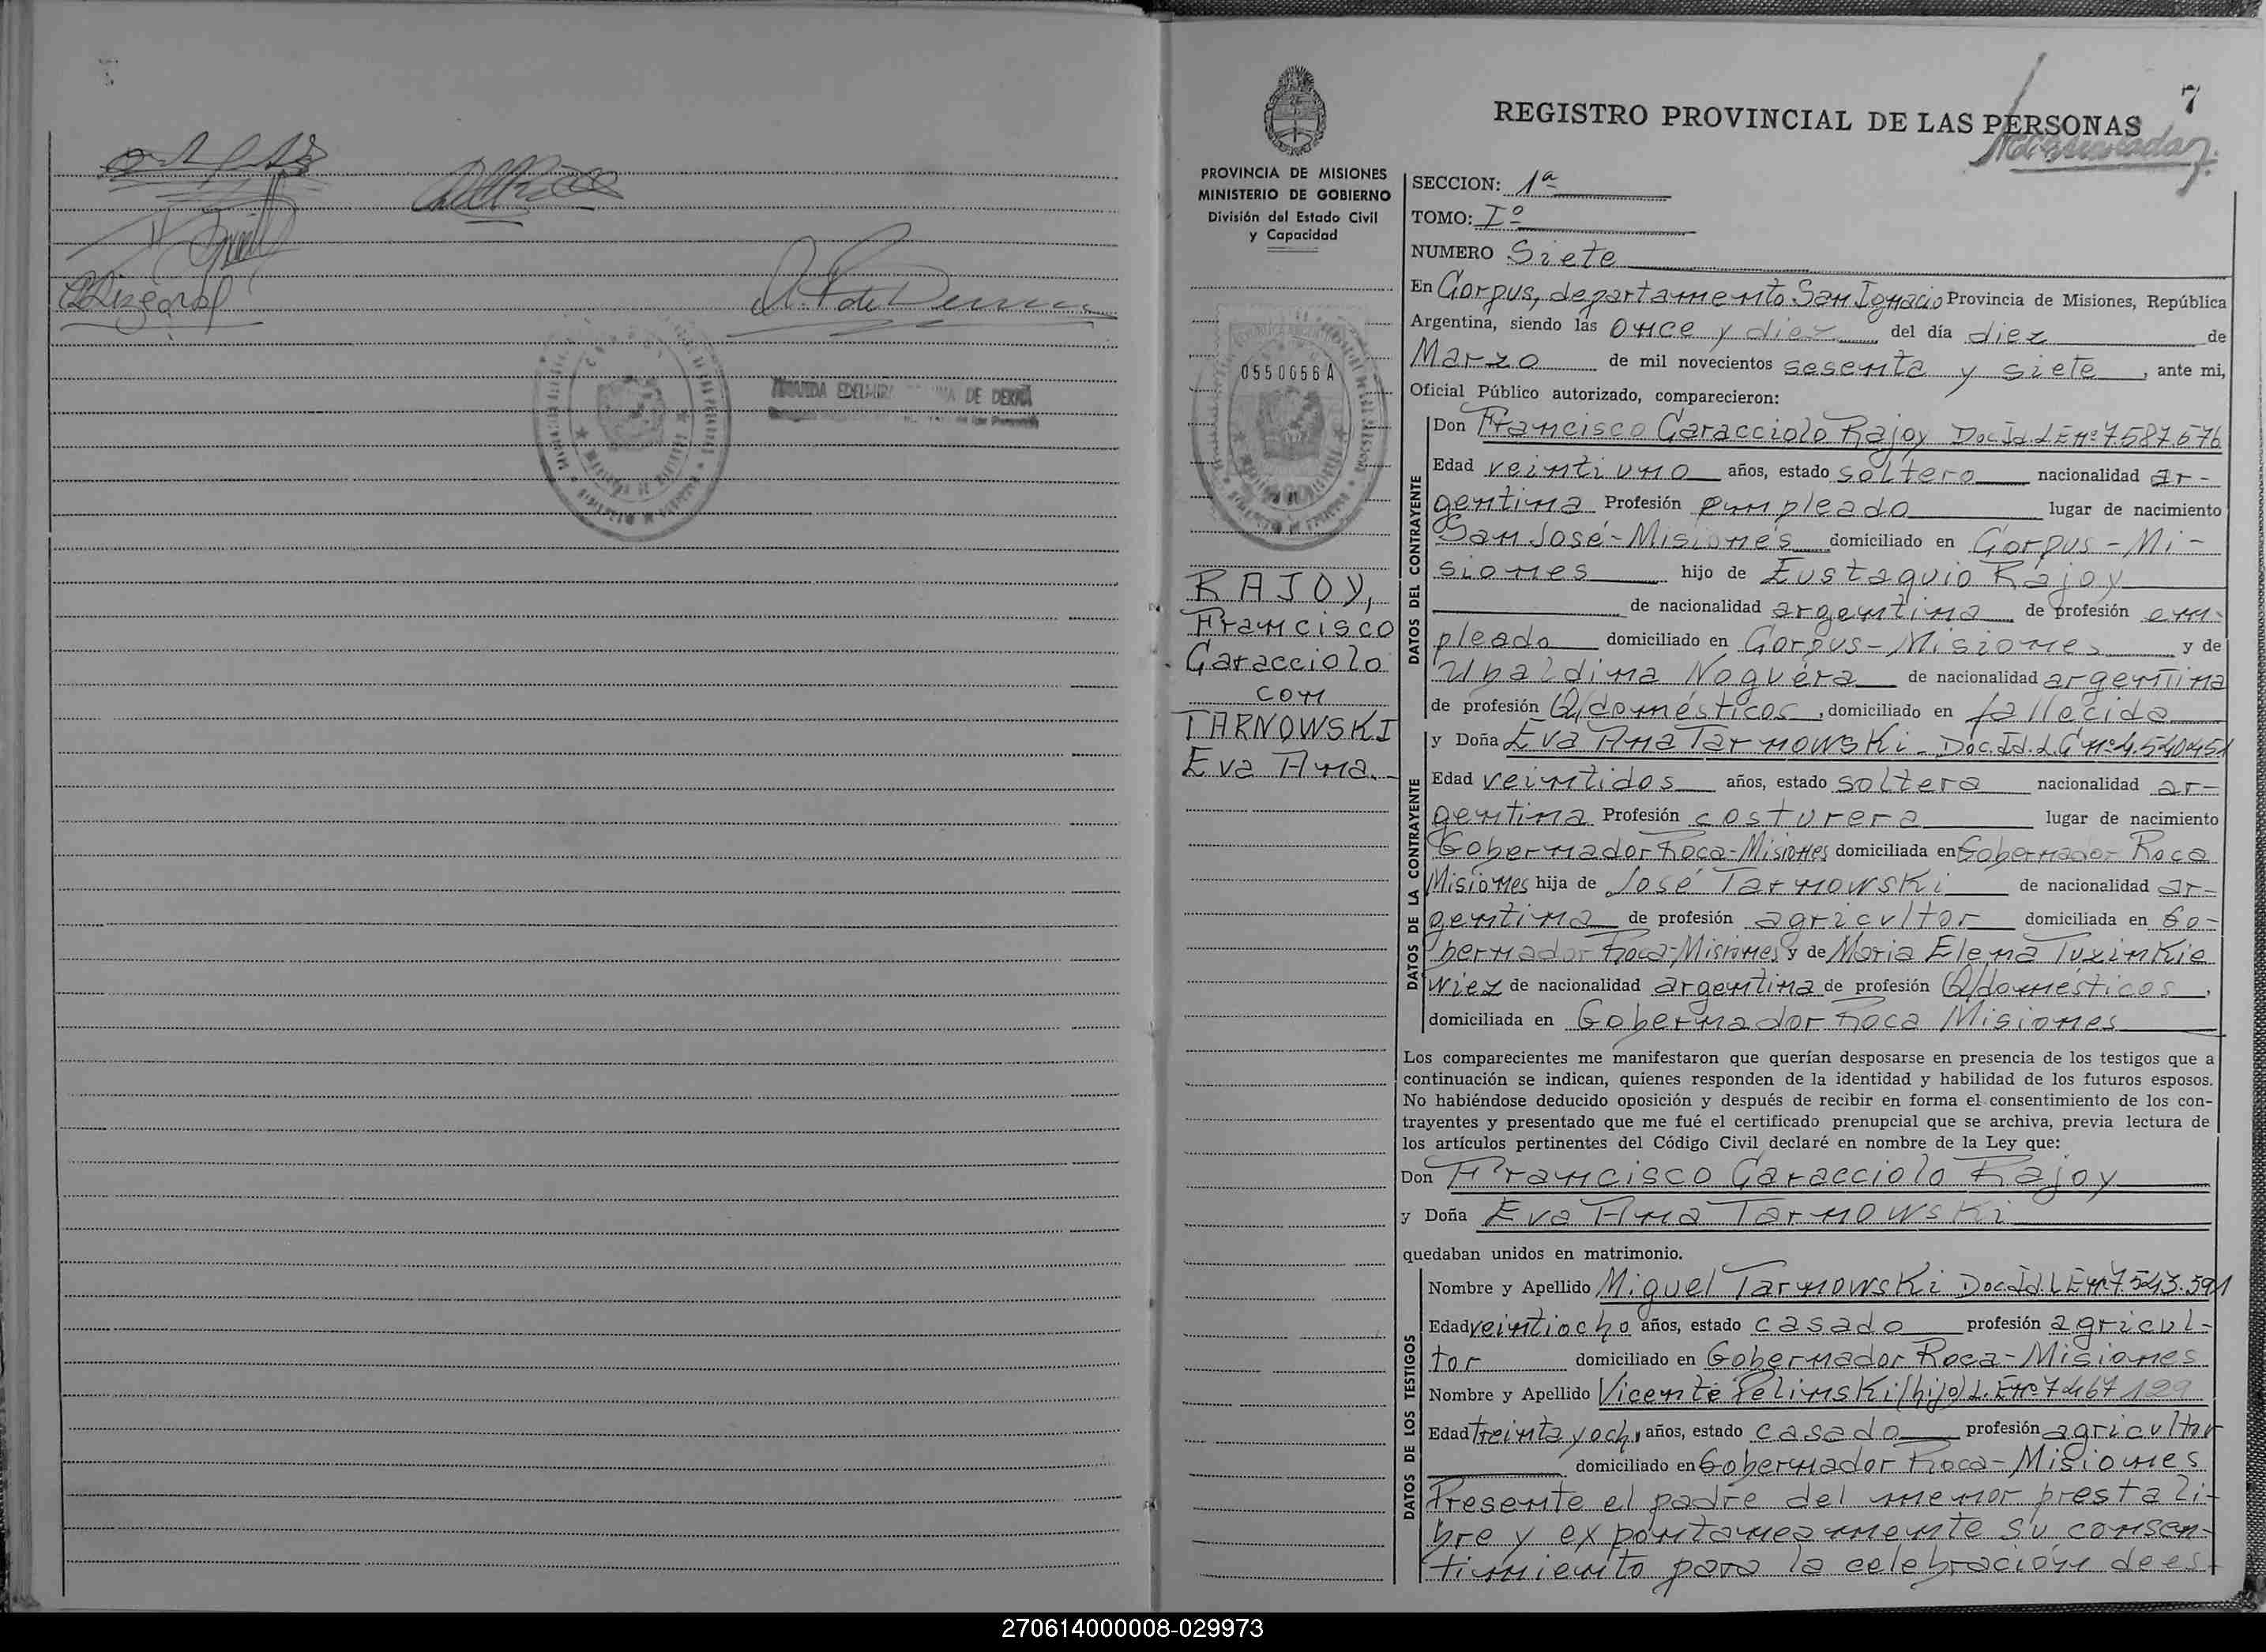 7
REGISTRO PROVINCIAL DE LAS PERSONAS
PROVINCIA DE MISIONES
MINISTERIO DE GOBIERNO
División del Estado Civil
y Capacidad
0550656 A
RAJOY,
Francisco
Caracciolo
con
TARNOWSKI
Eva Ana.
SECCION: 1ª
TOMO: Iº
NUMERO Siete
En Corpus, departamento San Ignacio Provincia de Misiones, República
Argentina, siendo las once y diez del día diez de
Marzo de mil novecientos sesenta y siete, ante mi,
Oficial Público autorizado, comparecieron:
DATOS DEL CONTRAYENTE
Don Francisco Caracciolo Rajoy Doc.Id.L.E nº 7.587.576
Edad veintiuno años, estado soltero nacionalidad ar-
gentina Profesión empleado lugar de nacimiento
San José-Misiones domiciliado en Corpus-Mi-
siones hijo de Eustaquio Rajoy
de nacionalidad argentina de profesión em-
pleado domiciliado en Corpus-Misiones y de
Ubaldina Noguera de nacionalidad argentina
de profesión Q/domésticos, domiciliado en fallecida
DATOS DE LA CONTRAYENTE
y Doña Eva Ana Tarnowski-Doc.Id.L.C nº 4.540451
Edad veintidos años, estado soltera nacionalidad ar-
gentina Profesión costurera lugar de nacimiento
Gobernador Roca-Misiones domiciliada en Gobernador Roca
Misiones hija de José Tarnowski de nacionalidad ar-
gentina de profesión agricultor domiciliada en Go-
bernador Roca-Misiones y de Maria Elena Tuzinkie
wiez de nacionalidad argentina de profesión Q/domésticos,
domiciliada en Gobernador Roca Misiones
Los comparecientes me manifestaron que querían desposarse en presencia de los testigos que a
continuación se indican, quienes responden de la identidad y habilidad de los futuros esposos.
No habiéndose deducido oposición y después de recibir en forma el consentimiento de los con-
trayentes y presentado que me fué el certificado prenupcial que se archiva, previa lectura de
los artículos pertinentes del Código Civil declaré en nombre de la Ley que:
Don Francisco Caracciolo Rajoy
y Doña Eva Ana Tarnowski
quedaban unidos en matrimonio.
DATOS DE LOS TESTIGOS
Nombre y Apellido Miguel Tarnowski Doc.Id.L.E nº 7.543.591
Edad veintiocho años, estado casado profesión agricul-
tor domiciliado en Gobernador Roca-Misiones
Nombre y Apellido Vicente Pelinski (hijo) L.E nº 7467129
Edad treinta y ocho años, estado casado profesión agricultor
domiciliado en Gobernador Roca-Misiones
Presente el padre del menor presta li-
bre y expontaneamente su consen-
timiento para la celebración de es-
270614000008-029973